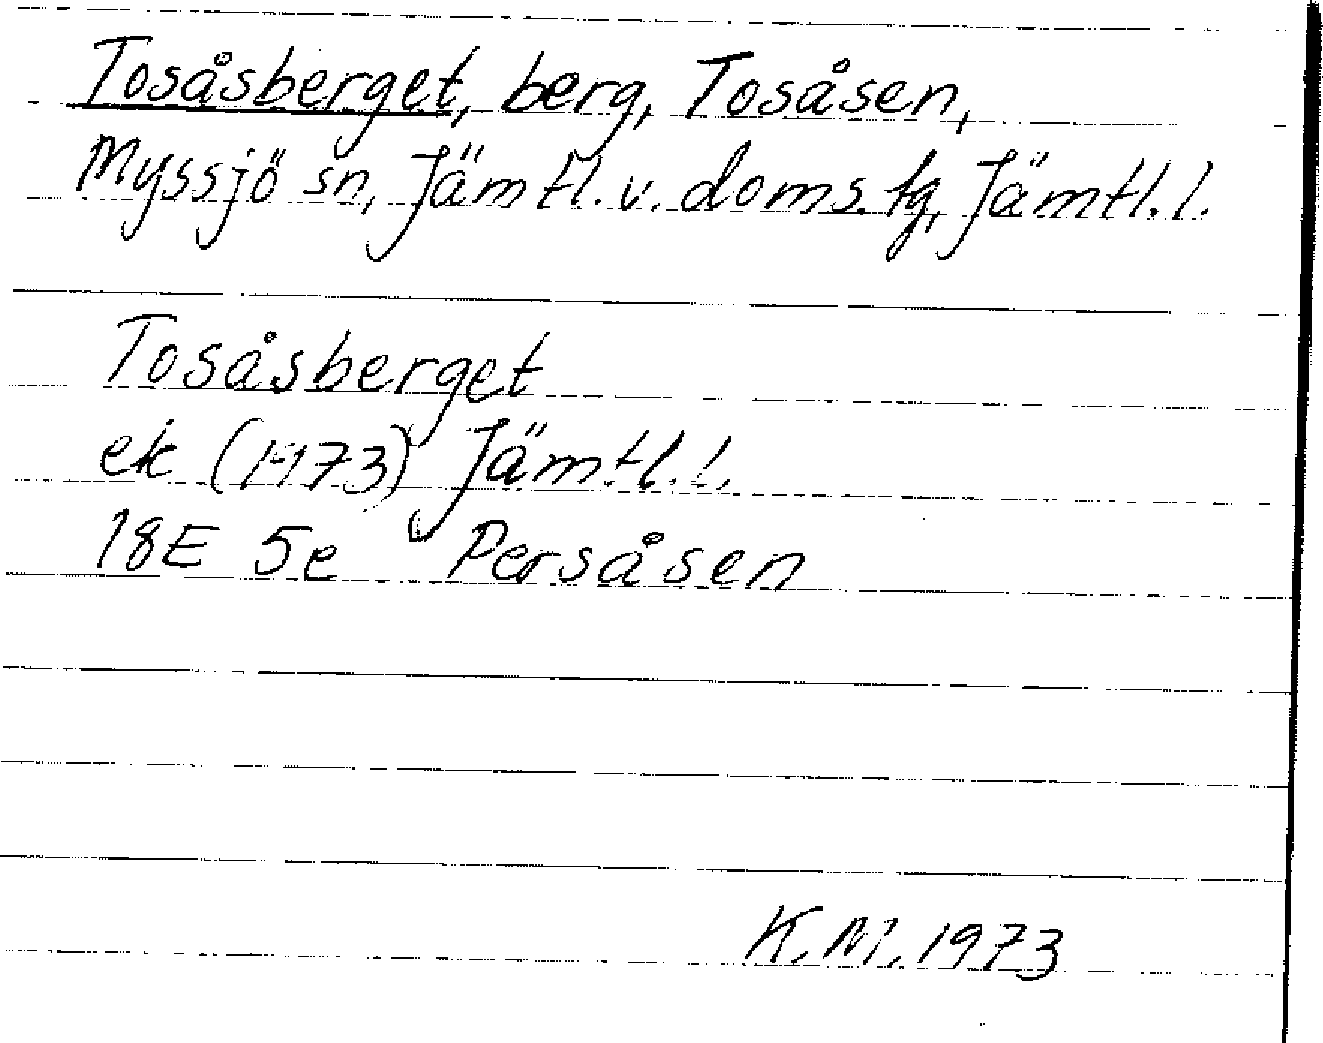 Tosåsberget, berg, Tosåsen,
Myssjö sn, Jämtl. v. doms. tg, Jämtl. l.
Tosåsberget
ek (1973) Jämtl. l.
18E 5e Persåsen
K.M. 1973